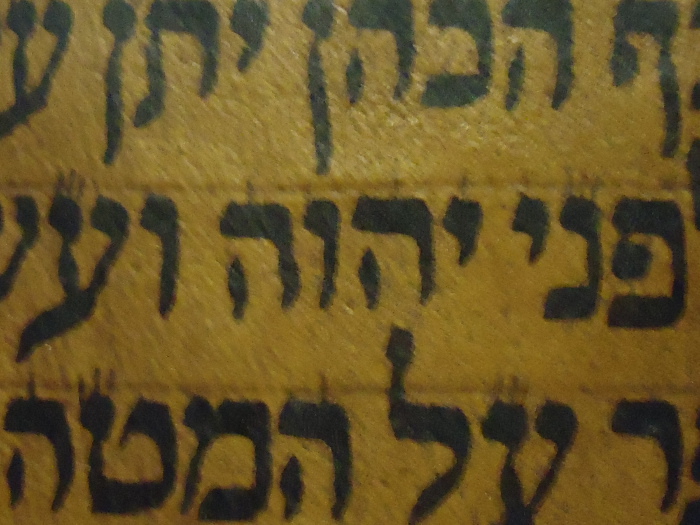 ף הכהן יתן ע
פני יהוה ועש
ר על המטה